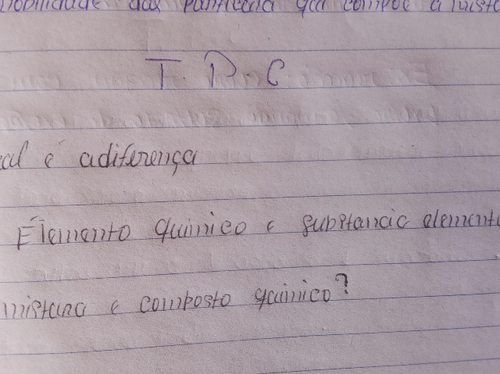 das particula que compõe a mist
T P C
al é adiferença
Elemento quimico e substancia element
mistura e composto quimico?